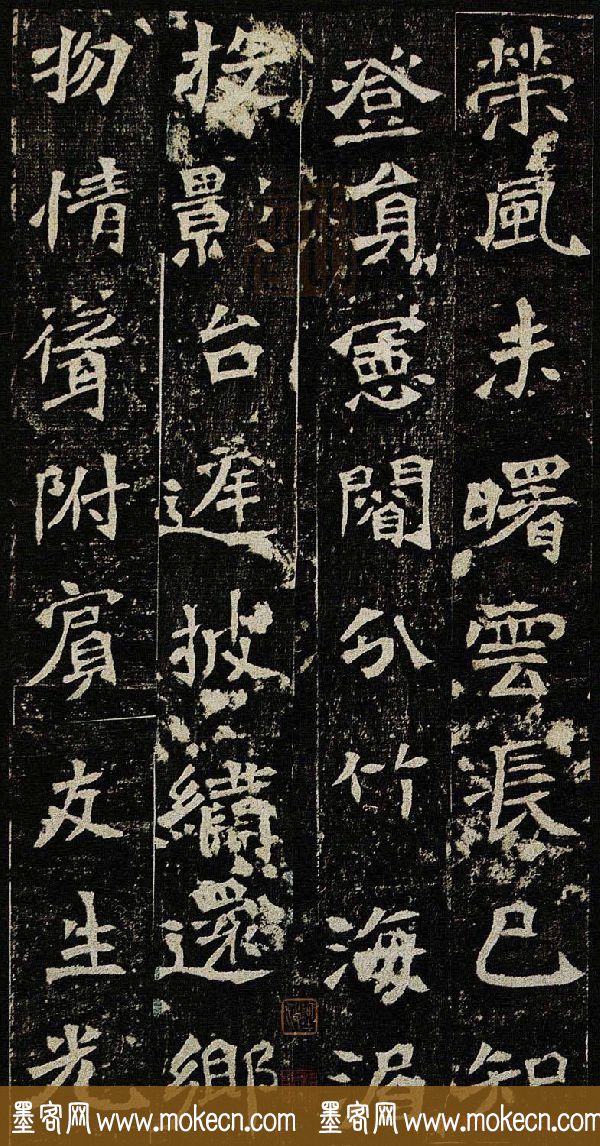 榮風未曙雲張已知
登身憲閣分竹海湄
影台遲披繡還鄉
物情聳附賓友生光
墨客网 www.mokecn.com 墨客网 www.mokecn.com